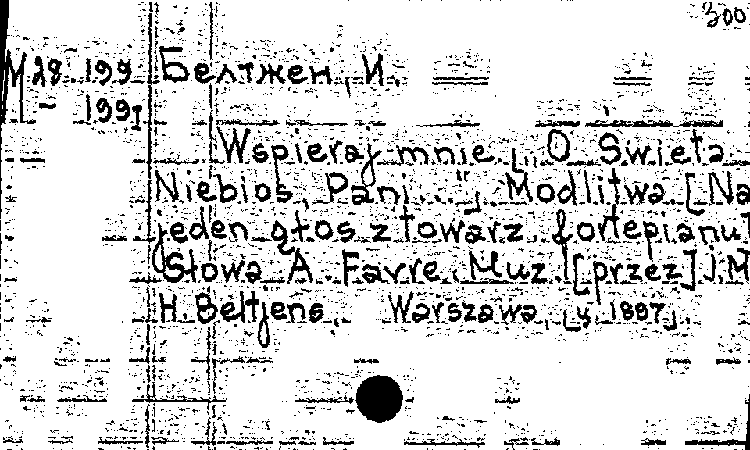 300
М 28.199 Белтжен, И.
- 199I
Wspieraj mnie, „O Swięta
Niebios Pani..." Modlitwa [Na
jeden głos z towarz. fortepianu]
Słowa A. Favre. Muz. [przez] J. M.
H. Beltjens. Warszawa, [y 1887].